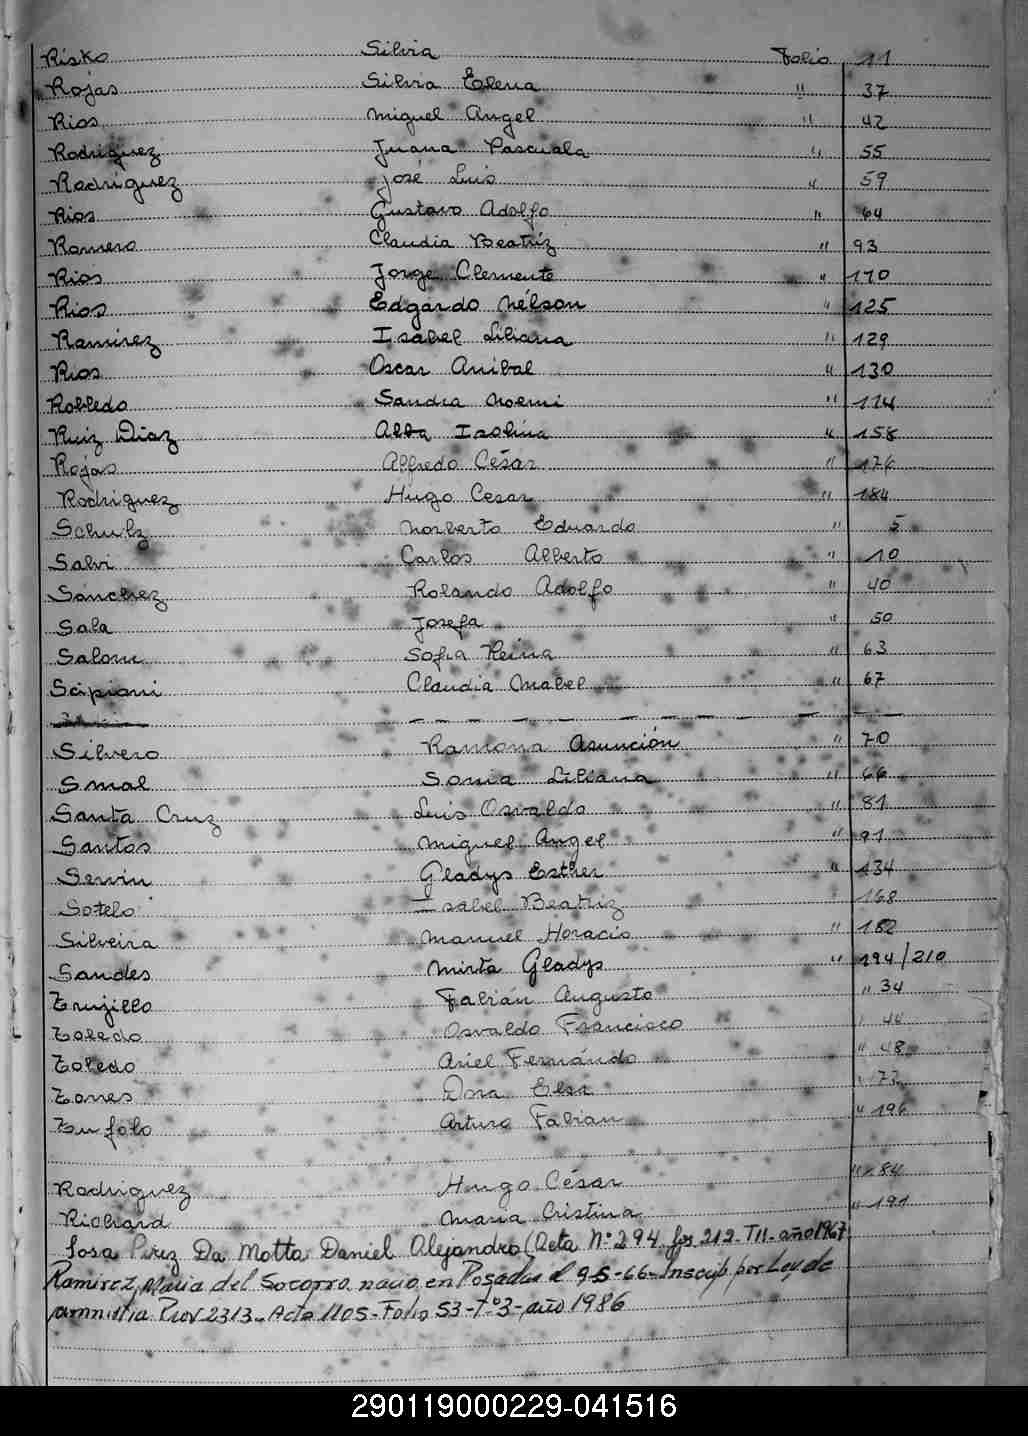 Risko Silvia Folio 11
Rojas Silvia Elena " 37
Rios Miguel Angel " 42
Rodriguez Juana Pascuala " 55
Rodriguez José Luis " 59
Rios Gustavo Adolfo " 64
Romero Claudia Beatriz " 93
Rios Jorge Clemente " 110
Rios Edgardo Nélson " 125
Ramirez Isabel Liliana " 129
Rios Oscar Anibal " 130
Robledo Sandra Noemi " 114
Ruiz Diaz Alba Isolina " 158
Rojas Alfredo César " 176
Rodriguez Hugo Cesar " 184
Schulz Norberto Eduardo " 5
Salvi Carlos Alberto " 10
Sanchez Rolando Adolfo " 40
Sala Josefa " 50
Salom Sofia Reina " 63
Scipioni Claudia Mabel " 67
Silvero Ramona Asunción " 70
Smal Sonia Liliana " 66
Santa Cruz Luis Osvaldo " 81
Santos Miguel Angel " 91
Servin Gladys Esther " 134
Sotelo Isabel Beatriz " 168
Silveira Manuel Horacio " 182
Sandes Mirta Gladys " 194/210
Trujillo Fabián Augusto " 34
Toledo Osvaldo Francisco "
Toledo Ariel Fernándo " 48
Torres Elsa "
Tufolo Arturo Fabian " 196
Rodriguez Hugo César " 184
Richard Maria Cristina " 191
Sosa Da Motta Daniel Alejandro (Acta Nº 294 fos 212-TII-año 1967
Ramirez, Maria del Socorro nacio en Posadas el 9-5-66-Inscrip por Ley de
amnistia Prov 2313-Acta 1105-Folio 53-Tº3-año 1986
290119000229-041516